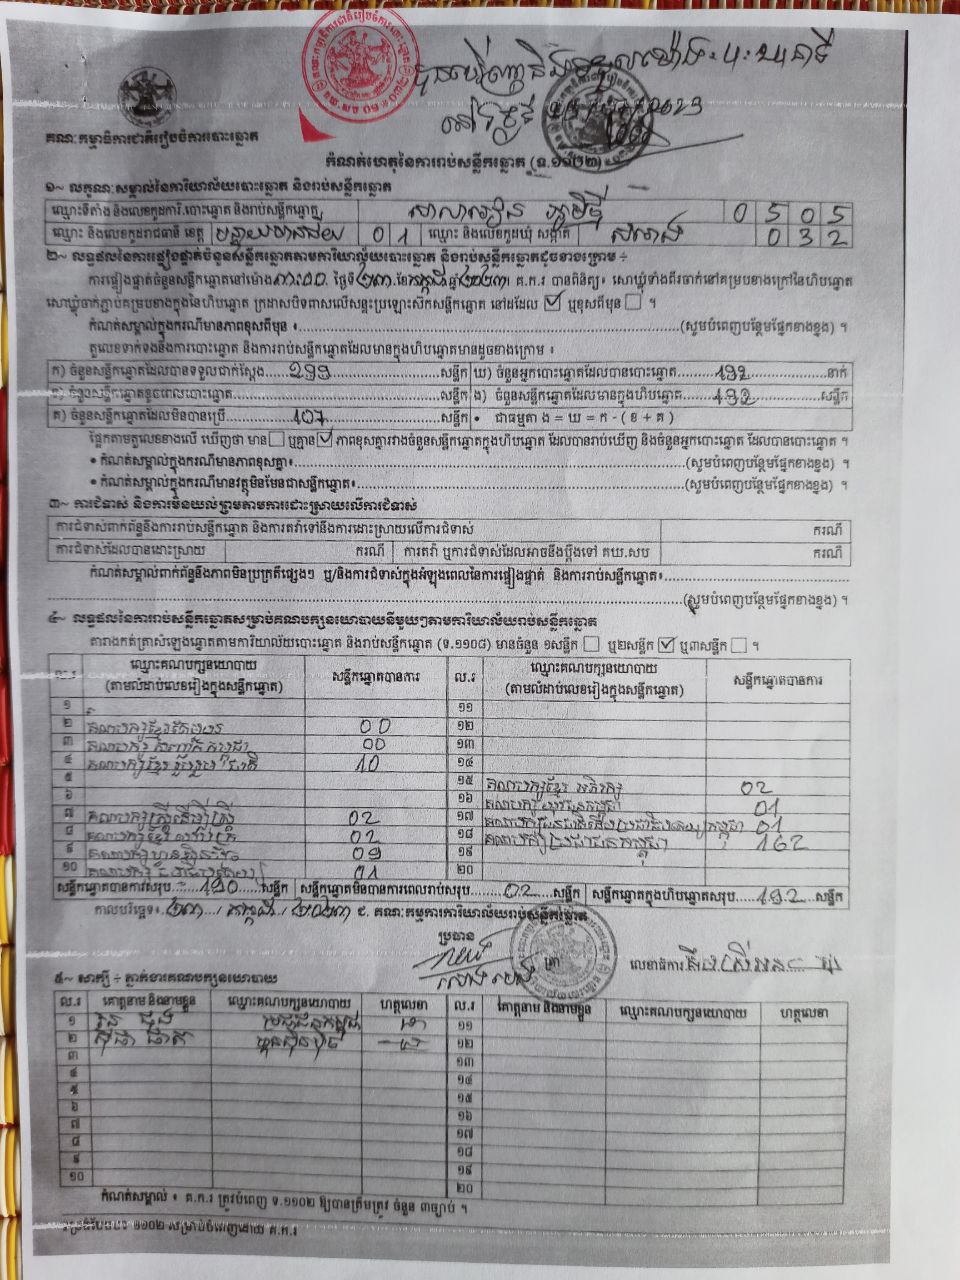 គណៈកម្មាធិការជាតិរៀបចំការបោះឆ្នោត
កំណត់ហេតុនៃការរាប់សន្លឹកឆ្នោត (ទ.១១០២)
១~ លក្ខណៈសម្គាល់នៃការិយាល័យបោះឆ្នោត និងរាប់សន្លឹកឆ្នោត
ឈ្មោះទីតាំង និងលេខកូដការិ.បោះឆ្នោត និងរាប់សន្លឹកឆ្នោត សាលារៀន ភូមិថ្មី 0 5 0 5
ឈ្មោះ និងលេខកូដរាជធានី ខេត្ត បន្ទាយមានជ័យ 0 1 ឈ្មោះ និងលេខកូដឃុំ សង្កាត់ 0 3 2
២~ លទ្ធផលនៃការផ្ទៀងផ្ទាត់ចំនួនសន្លឹកឆ្នោតតាមការិយាល័យបោះឆ្នោត និងរាប់សន្លឹកឆ្នោតដូចខាងក្រោម ÷
ការផ្ទៀងផ្ទាត់ចំនួនសន្លឹកឆ្នោតនៅម៉ោង ថ្ងៃទី២៣ ខែកក្កដា ឆ្នាំ២០២៣ គ.ក.រ បានពិនិត្យ៖ សោឃ្លុំទាំងពីរចាក់នៅគម្របខាងក្រៅនៃហិបឆ្នោត
សោឃ្លុំចាក់ភ្ជាប់គម្របខាងក្នុងនៃហិបឆ្នោត ក្រដាសបិទពាសលើសន្ទះប្រឡោះសិកសន្លឹកឆ្នោត នៅដដែល ☑ ឬខុសពីមុន ☐ ។
កំណត់សម្គាល់ក្នុងករណីមានភាពខុសពីមុន ៖ (សូមបំពេញបន្ថែមផ្នែកខាងខ្នង) ។
តួលេខទាក់ទងនឹងការបោះឆ្នោត និងការរាប់សន្លឹកឆ្នោតដែលមានក្នុងហិបឆ្នោតមានដូចខាងក្រោម ៖
ក) ចំនួនសន្លឹកឆ្នោតដែលបានទទួលជាក់ស្តែង 299 សន្លឹក ឃ) ចំនួនអ្នកបោះឆ្នោតដែលបានបោះឆ្នោត 192 នាក់
ខ) ចំនួនសន្លឹកឆ្នោតខូចពេលបោះឆ្នោត សន្លឹក ង) ចំនួនសន្លឹកឆ្នោតដែលមានក្នុងហិបឆ្នោត 192 សន្លឹក
គ) ចំនួនសន្លឹកឆ្នោតដែលមិនបានប្រើ 107 សន្លឹក • ជាធម្មតា ង = ឃ = ក - ( ខ + គ )
ផ្អែកតាមតួលេខខាងលើ ឃើញថា មាន ☐ ឬគ្មាន ☑ ភាពខុសគ្នារវាងចំនួនសន្លឹកឆ្នោតក្នុងហិបឆ្នោត ដែលបានរាប់ឃើញ និងចំនួនអ្នកបោះឆ្នោត ដែលបានបោះឆ្នោត ។
• កំណត់សម្គាល់ក្នុងករណីមានភាពខុសគ្នា៖ (សូមបំពេញបន្ថែមផ្នែកខាងខ្នង) ។
• កំណត់សម្គាល់ក្នុងករណីមានវត្ថុមិនមែនជាសន្លឹកឆ្នោត៖ (សូមបំពេញបន្ថែមផ្នែកខាងខ្នង) ។
៣~ ការជំទាស់ និងការមិនយល់ព្រមតាមការដោះស្រាយលើការជំទាស់
ការជំទាស់ពាក់ព័ន្ធនឹងការរាប់សន្លឹកឆ្នោត និងការតវ៉ាទៅនឹងការដោះស្រាយលើការជំទាស់ ករណី
ការជំទាស់ដែលបានដោះស្រាយ ករណី ការតវ៉ា ឬការជំទាស់ដែលអាចនឹងប្តឹងទៅ គឃ.សប ករណី
កំណត់សម្គាល់ពាក់ព័ន្ធនឹងភាពមិនប្រក្រតីផ្សេងៗ ឬ/និងការជំទាស់ក្នុងអំឡុងពេលនៃការផ្ទៀងផ្ទាត់ និងការរាប់សន្លឹកឆ្នោត៖
(សូមបំពេញបន្ថែមផ្នែកខាងខ្នង) ។
៤~ លទ្ធផលនៃការរាប់សន្លឹកឆ្នោតសម្រាប់គណបក្សនយោបាយនីមួយៗតាមការិយាល័យរាប់សន្លឹកឆ្នោត
តារាងកត់ត្រាសំឡេងឆ្នោតតាមការិយាល័យបោះឆ្នោត និងរាប់សន្លឹកឆ្នោត (ទ.១១០៨) មានចំនួន ១សន្លឹក ☐ ឬ២សន្លឹក ☑ ឬ៣សន្លឹក ☐ ។
ល.រ ឈ្មោះគណបក្សនយោបាយ (តាមលំដាប់លេខរៀងក្នុងសន្លឹកឆ្នោត) សន្លឹកឆ្នោតបានការ ល.រ ឈ្មោះគណបក្សនយោបាយ (តាមលំដាប់លេខរៀងក្នុងសន្លឹកឆ្នោត) សន្លឹកឆ្នោតបានការ
១ ១១
២ 00 ១២
៣ 00 ១៣
៤ គណបក្សខ្មែររួបរួមជាតិ 10 ១៤
៥ ១៥ គណបក្សខ្មែរអភិរក្ស 02
៦ ១៦ 01
៧ គណបក្សស្ត្រីដើម្បីស្ត្រី 02 ១៧ 01
៨ 02 ១៨ គណបក្សប្រជាជនកម្ពុជា 162
៩ គណបក្សហ៊្វុនស៊ិនប៉ិច 09 ១៩
១០ 01 ២០
សន្លឹកឆ្នោតបានការសរុប 190 សន្លឹក សន្លឹកឆ្នោតមិនបានការពេលរាប់សរុប 02 សន្លឹក សន្លឹកឆ្នោតក្នុងហិបឆ្នោតសរុប 192 សន្លឹក
កាលបរិច្ឆេទ៖ ២៣ / កក្កដា / ២០២៣ ជ. គណៈកម្មការការិយាល័យរាប់សន្លឹកឆ្នោត
ប្រធាន
លេខាធិការ
៥~ សាក្សី ÷ ភ្នាក់ងារគណបក្សនយោបាយ
ល.រ គោត្តនាម និងនាមខ្លួន ឈ្មោះគណបក្សនយោបាយ ហត្ថលេខា ល.រ គោត្តនាម និងនាមខ្លួន ឈ្មោះគណបក្សនយោបាយ ហត្ថលេខា
១ ប្រជាជនកម្ពុជា ១១
២ ហ៊្វុនស៊ិនប៉ិច ១២
៣ ១៣
៤ ១៤
៥ ១៥
៦ ១៦
៧ ១៧
៨ ១៨
៩ ១៩
១០ ២០
កំណត់សម្គាល់ ៖ គ.ក.រ ត្រូវបំពេញ ទ.១១០២ ឱ្យបានត្រឹមត្រូវ ចំនួន ៣ច្បាប់ ។
១១០២ សម្រាប់បំពេញដោយ គ.ក.រ